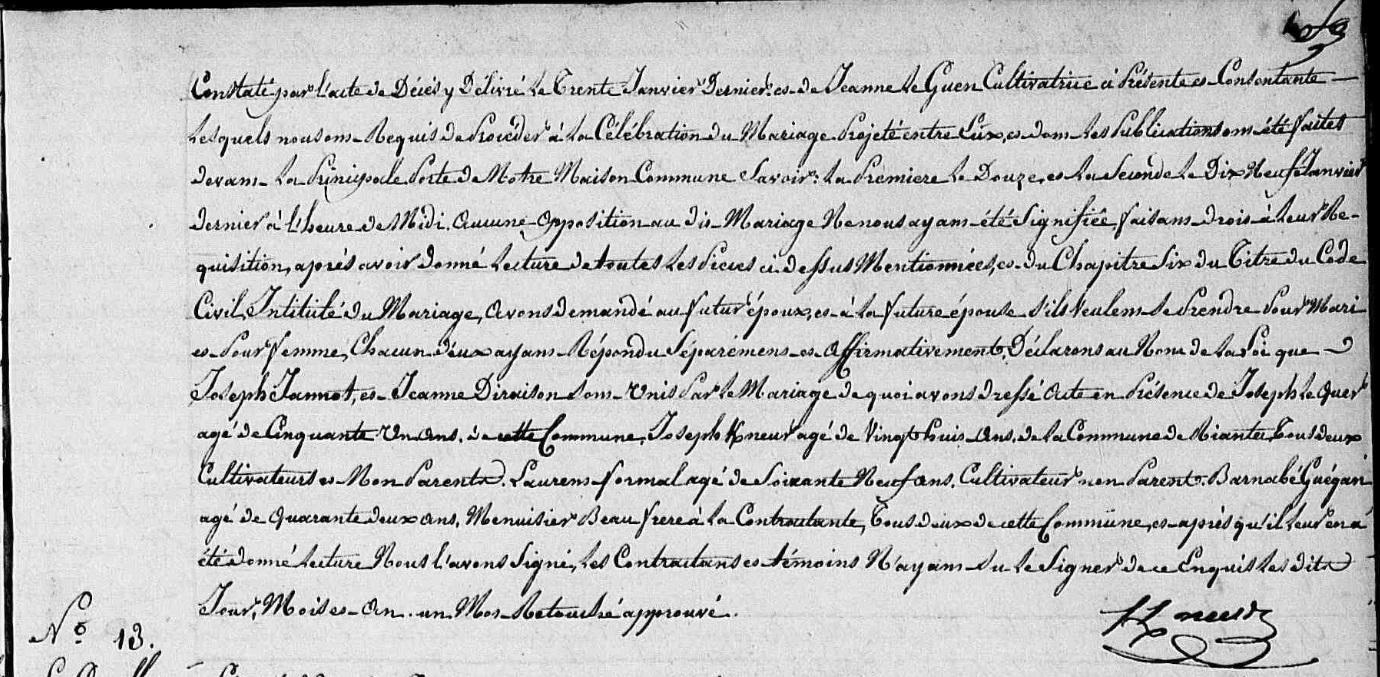 Constaté par l'acte de Décès y Délivré le Trente Janvier Dernier: et de Jeanne le Guen Cultivatrice ci Présente et Consentante
Lesquels nous ont Requis de Procéder à la Célébration du Mariage Projeté entre Eux, et dont les Publications ont été faites
devant la Principale Porte de Notre Maison Commune Savoir: la Premiere le Douze, et la Seconde le Dix Neuf Janvier
dernier à l'heure de Midi. Aucune Opposition au dit Mariage Ne nous ayant été Signifiée, faisant droit à leur Re-
quisition, après avoir donné lecture de toutes les Pieces ci dessus Mentionnées, et du Chapitre Six du Titre du Code
Civil, Intitulé du Mariage, Avons demandé au futur époux, et à la future épouse s'ils Veulent se Prendre Pour Mari
et Pour femme, Chacun d'eux ayant Répondu Séparément et Affirmativement, Déclarons au Nom de la Loi que
Joseph Jannot, et Jeanne Diraison sont Unis Par le Mariage de quoi avons dressé Acte en Présence de Joseph le
agé de Cinquante Un Ans, de cette Commune, Joseph Kneur agé de Vingt huit Ans, de la Commune de Riantec, Tous deux
Cultivateurs et Non Parents. Laurent formal agé de Soixante Neuf Ans, Cultivateur non Parent. Barnabé Guégan
agé de Quarante deux Ans, Menuisier Beau frere à la Contractante, Tous deux de cette Commune, et après qu'il leur en a
été donné lecture Nous l'avons Signé, les Contractans et témoins N'ayant su le Signer de ce Enquis les dits
Jour, Mois et An. un Mot Retouché approuvé.
Kneur
No 13.